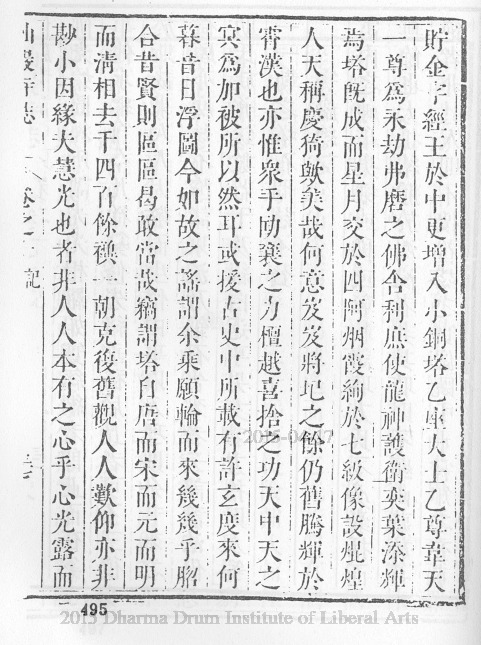 貯金字經王於中更增入小銅塔乙座大士乙尊韋天
一尊爲永劫弗磨之佛舍利庶使龍神護衛奕葉添輝
焉塔旣成而星月交於四阿烟霞絢於七級像設焜煌
人天稱慶猗歟美哉何意岌岌將圮之餘仍舊騰輝於
霄漢也亦惟衆手助襄之力檀越喜捨之功天中天之
冥爲加被所以然耳或援古史中所載有許玄度來何
暮昔日浮圖今如故之謠謂余乘願輪而來幾幾乎脗
合昔賢則區區曷敢當哉竊謂塔自唐而宋而元而明
而淸相去千四百餘禩一朝克復舊觀人人歎仰亦非
尠小因緣夫慧光也者非人人本有之心乎心光露而
寺志 卷之 記
495
2015-04-07
2015 Dharma Drum Institute of Liberal Arts